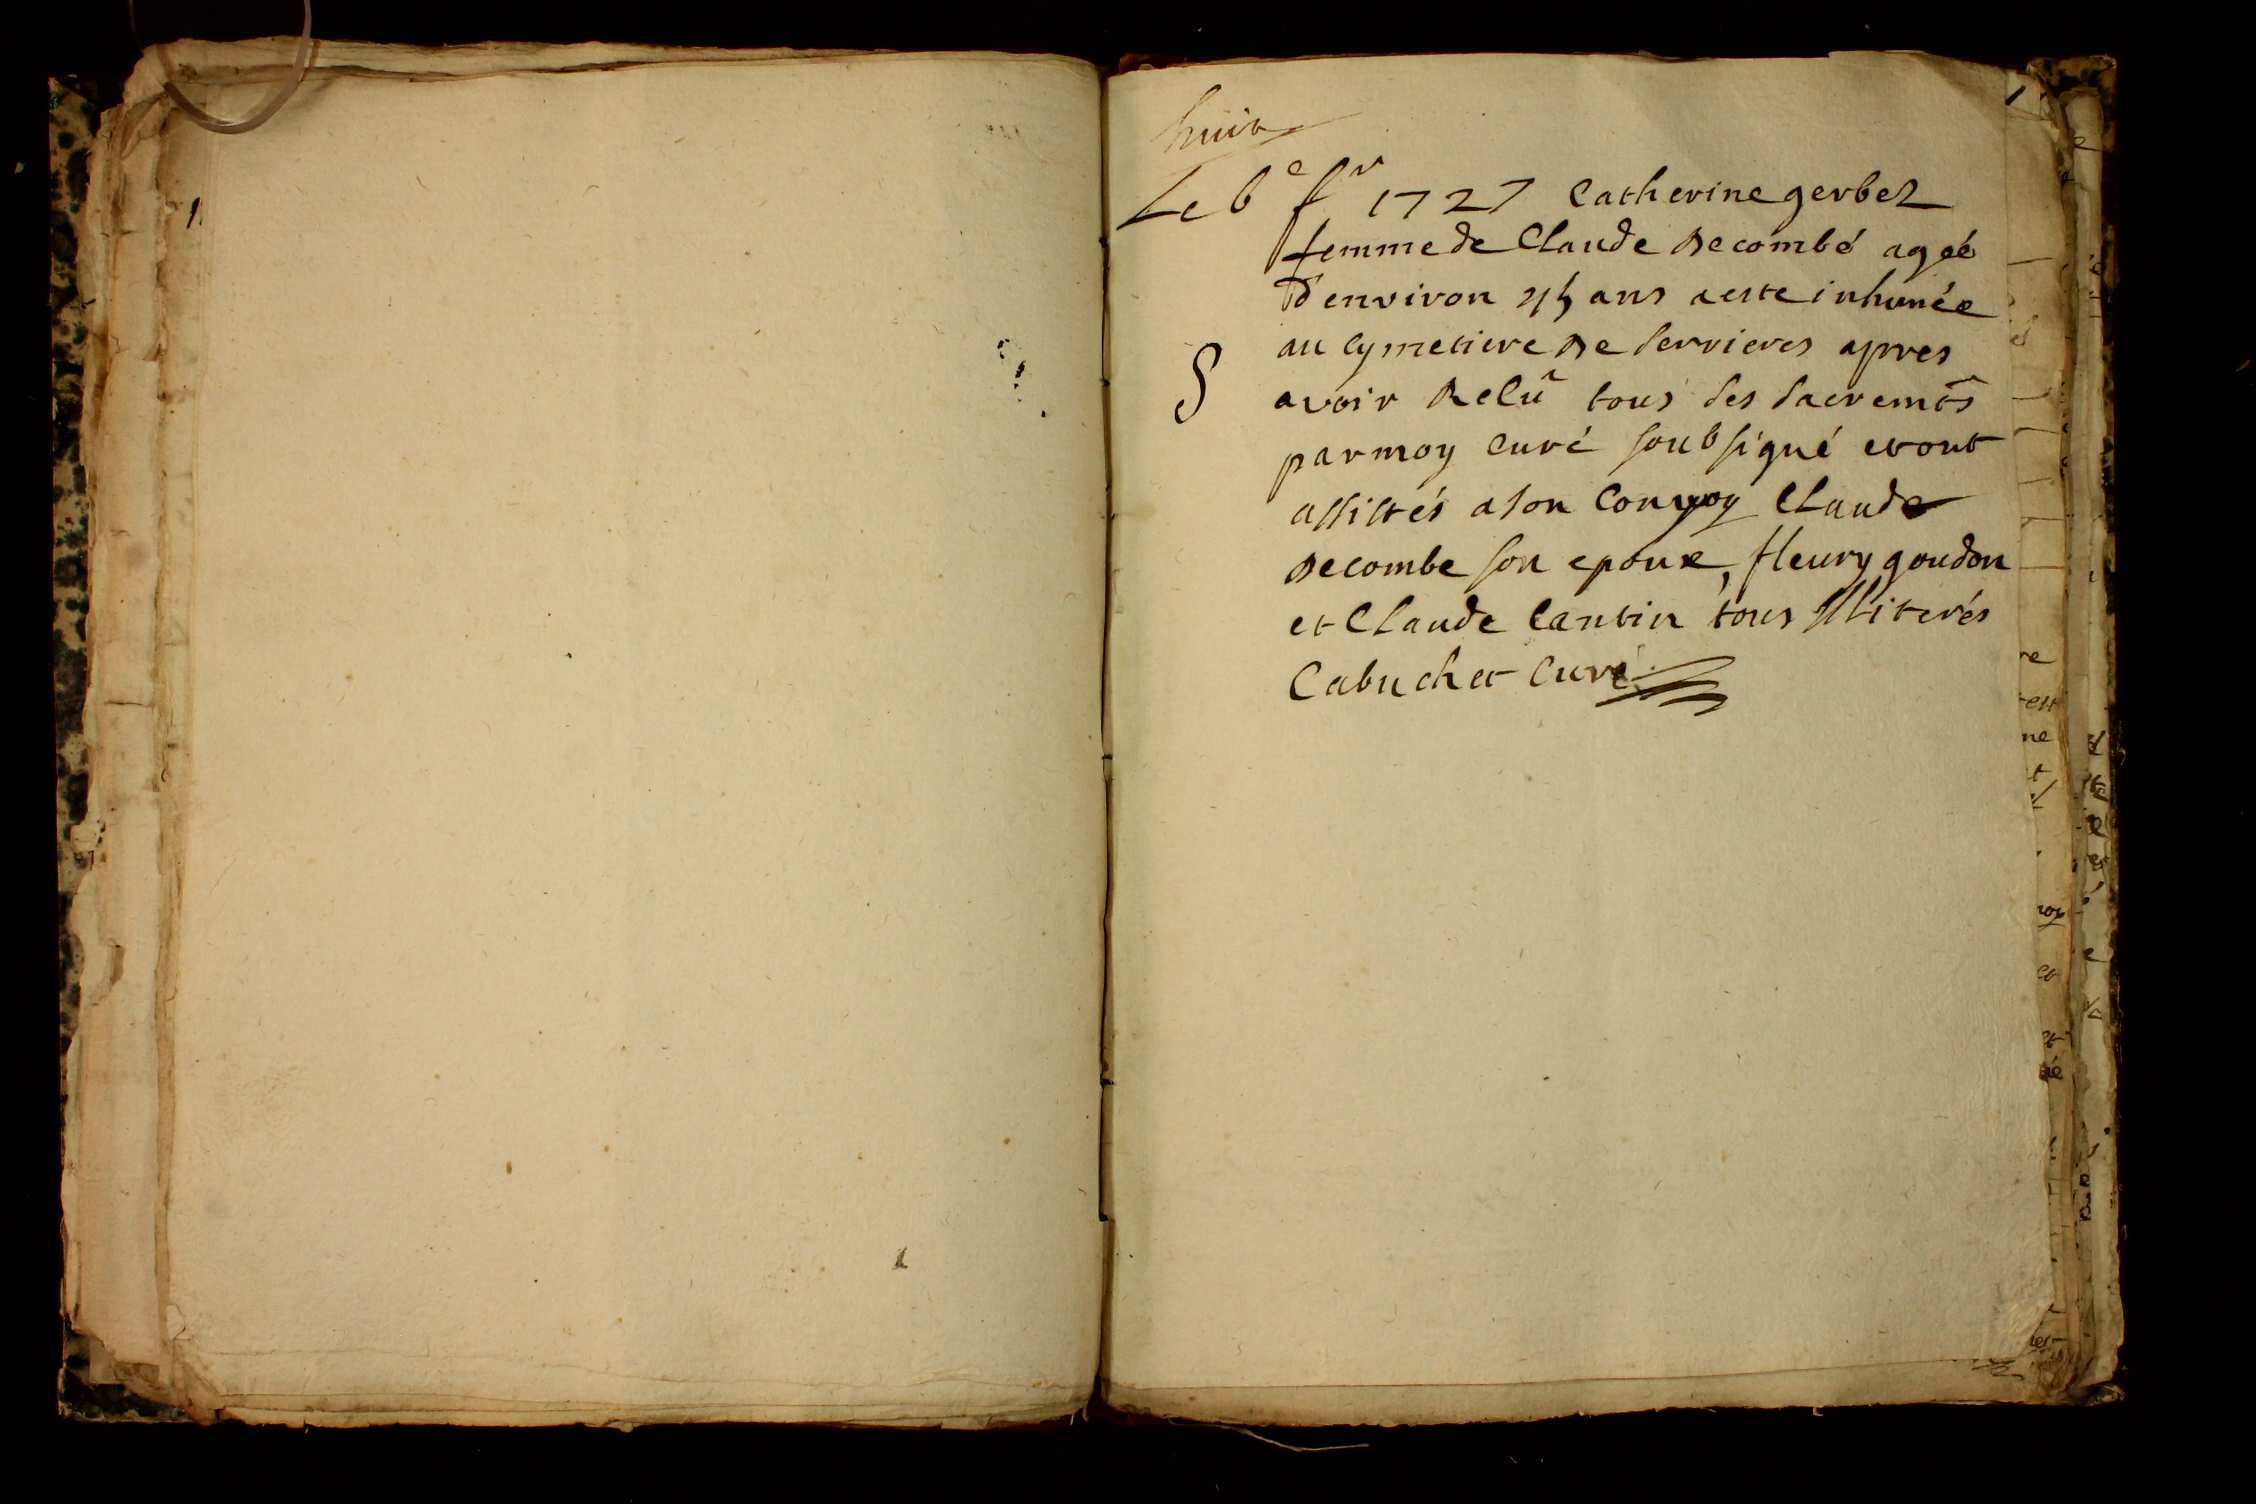 huit
Le 6e fr 1727 Catherine gerbez
femme de Claude Decombé agéé
d'environ 45 ans a este inhumée
au Cymetiere de Serrieres apres
S
avoir Recû tous Ses Sacremts
par moy Curé soubsigné et ont
assistés a son Convoy Claude
Decombe son epoux, fleury goudon
et Claude Cantin tous Illiterés
Cabuchet Curé